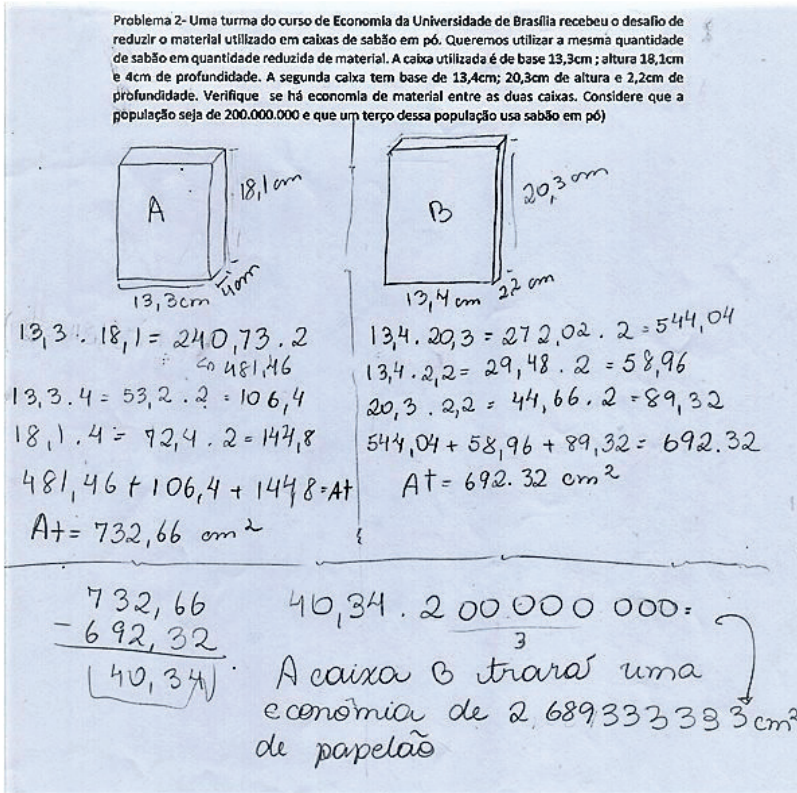 Problema 2- Uma turma do curso de Economia da Universidade de Brasília recebeu o desafio de
reduzir o material utilizado em caixas de sabão em pó. Queremos utilizar a mesma quantidade
de sabão em quantidade reduzida de material. A caixa utilizada é de base 13,3cm ; altura 18,1cm
e 4cm de profundidade. A segunda caixa tem base de 13,4cm; 20,3cm de altura e 2,2cm de
profundidade. Verifique se há economia de material entre as duas caixas. Considere que a
população seja de 200.000.000 e que um terço dessa população usa sabão em pó)
A
18,1 cm
4cm
13,3cm
B
20,3 cm
22 cm
13,4 cm
13,3 . 18,1 = 240,73 . 2
481,46
13,3 . 4 = 53,2 . 2 = 106,4
18,1 . 4 = 72,4 . 2 = 144,8
481,46 + 106,4 + 144,8 = At
At = 732,66 cm²
13,4 . 20,3 = 272,02 . 2 = 544,04
13,4 . 2,2 = 29,48 . 2 = 58,96
20,3 . 2,2 = 44,66 . 2 = 89,32
544,04 + 58,96 + 89,32 = 692.32
At = 692.32 cm²
732,66
- 692,32
40,34
40,34 . 200 000 000 =
3
A caixa B trará uma
economia de 2 689 333 333 cm²
de papelão